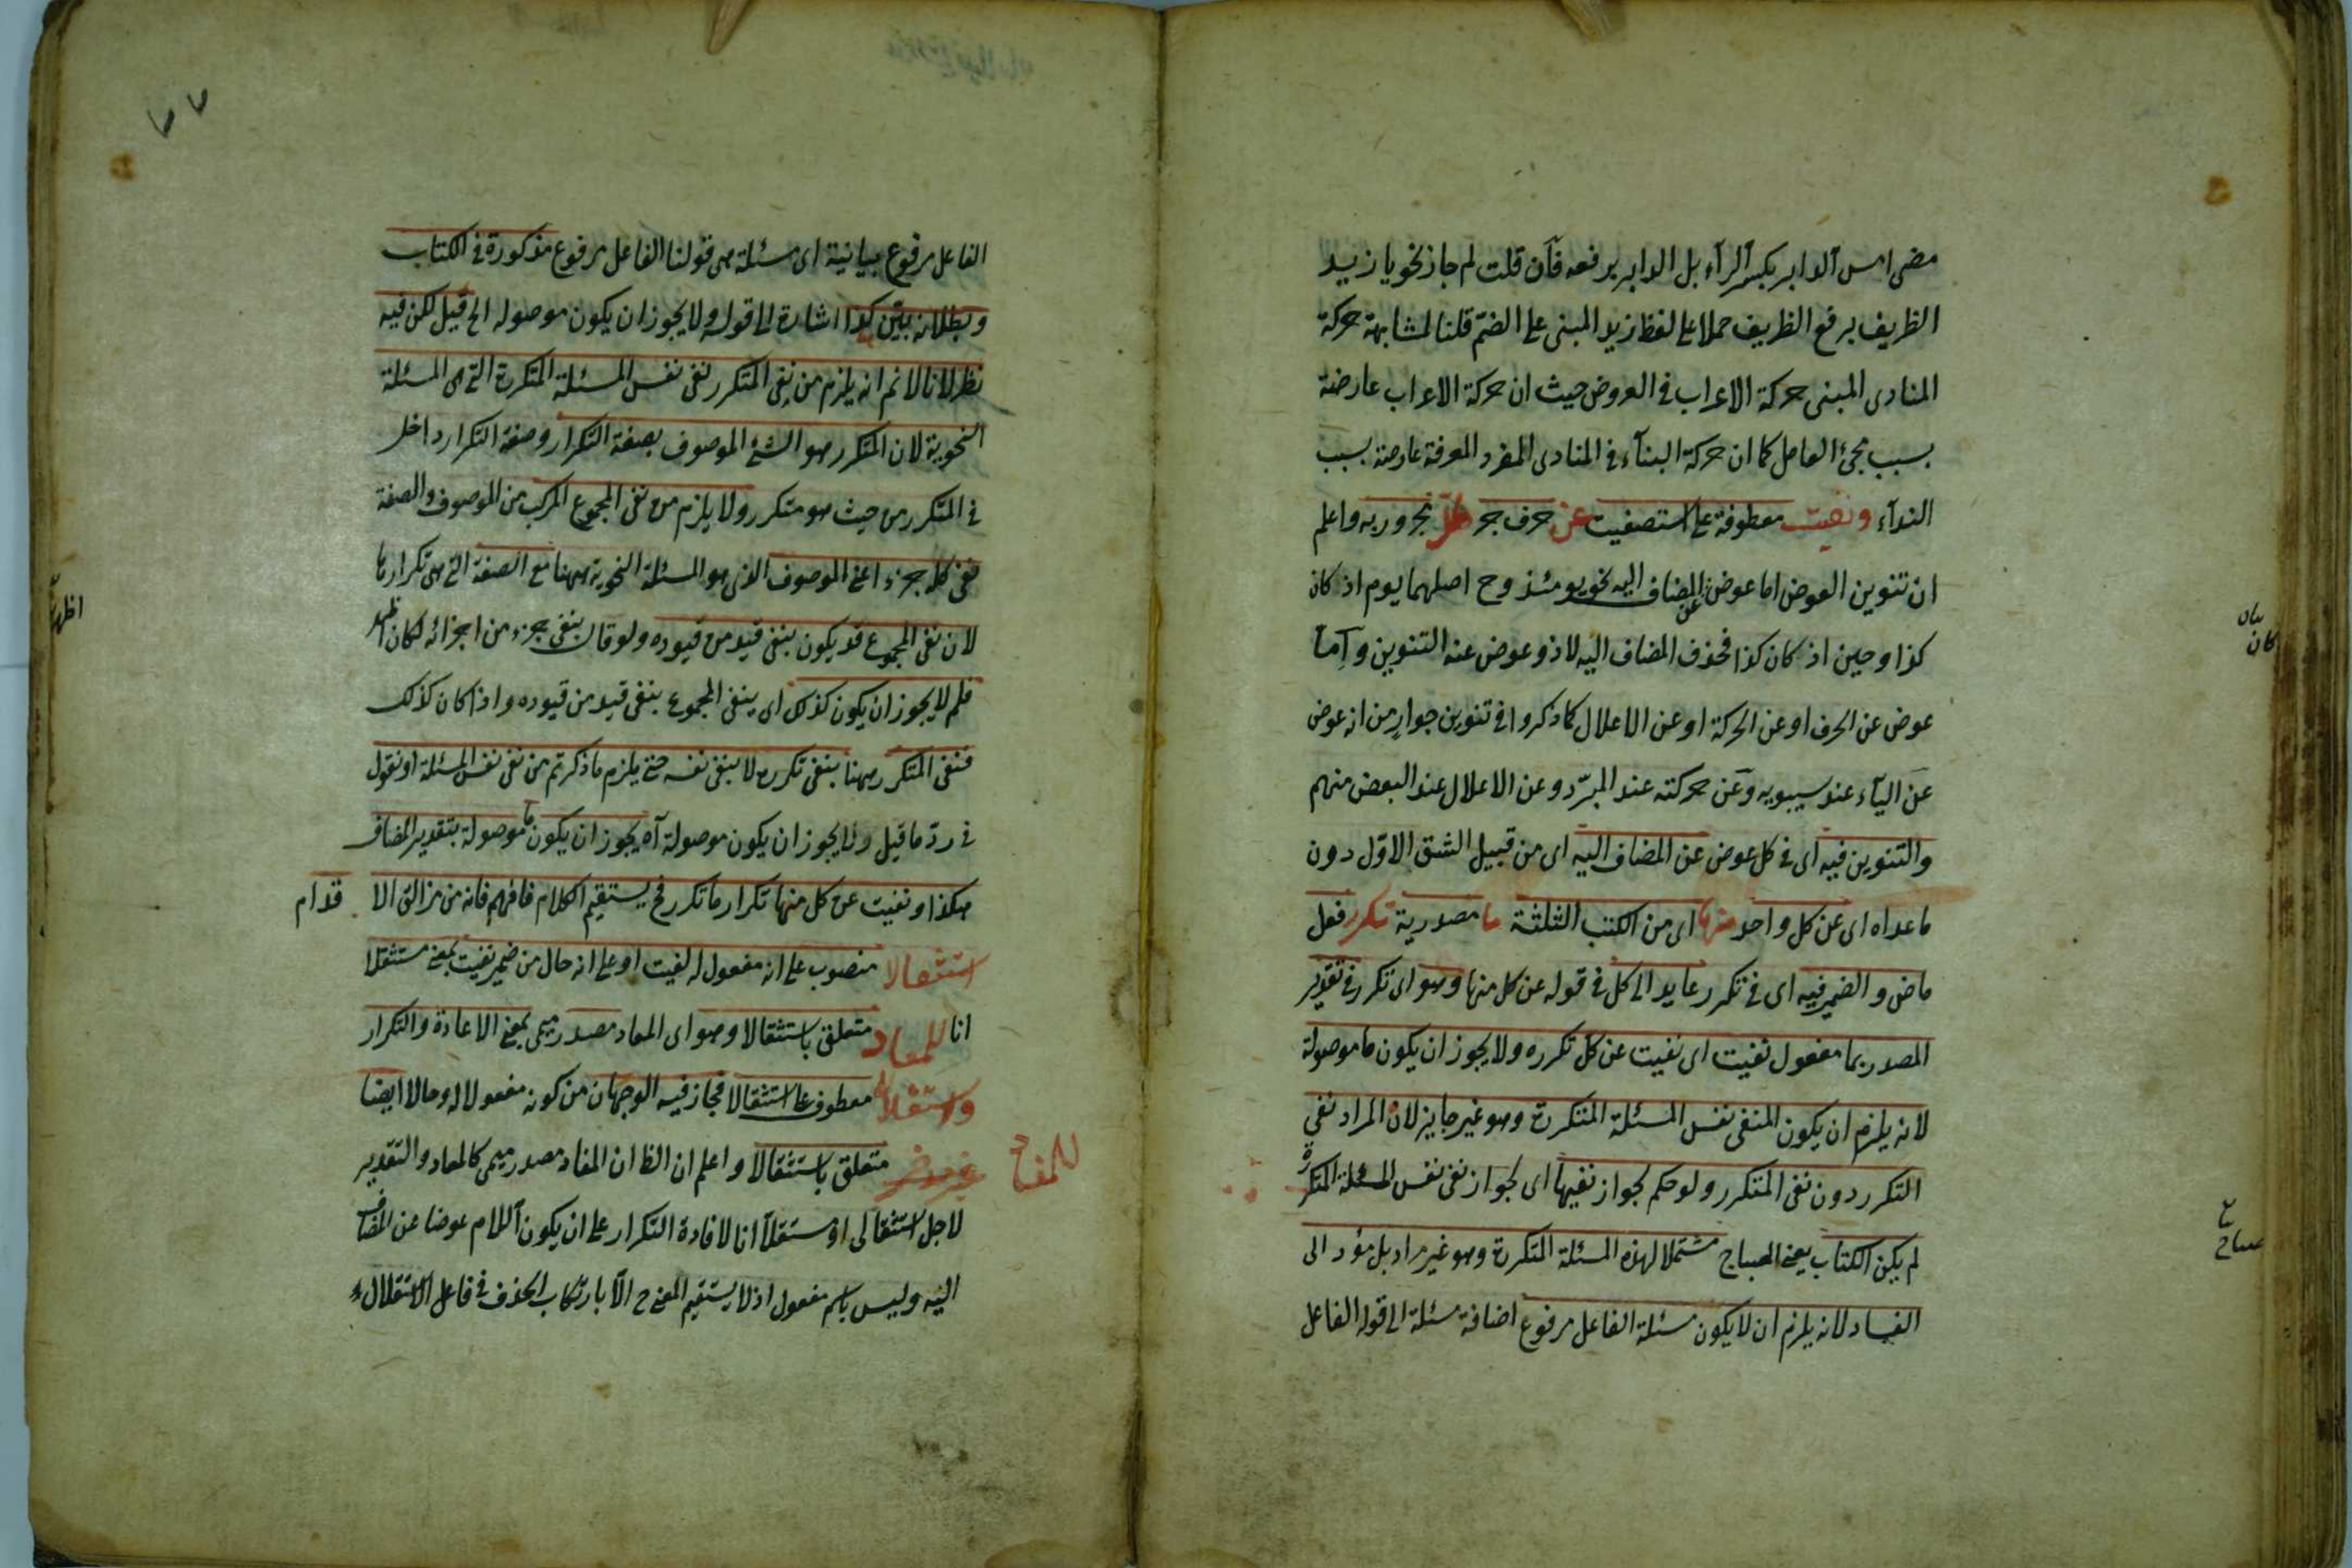 مضى امس الدابر بكسر الرآء بل الدابر برفعه فان قلت لم جاز نحو يا زيد
الظريف برفع الظريف حملا على لفظ زيد المبنى على الضم قلنا لمشابهة حركة
المنادى المبنى حركة الاعراب فى العروض حيث ان حركة الاعراب عارضة
بسبب مجئ العامل كما ان حركة البنآء فى المنادى المفرد المعرفة عارضة بسبب
الندآء ونفيت معطوفة على استصفيت عن حرف جر كل مجرور به واعلم
ان تنوين العوض اما عوض عن المضاف اليه نحو يومئذ وح اصلهما يوم اذ كان
كذا وحين اذ كان كذا فحذف المضاف اليه لاذ وعوض عنه التنوين واما
عوض عن الحرف او عن الحركة او عن الاعلال كما ذكروا فى تنوين جوار من انه عوض
عن اليآء عند سيبويه وعن حركته عند المبرد وعن الاعلال عند البعض منهم
والتنوين فيه اى فى كل عوض عن المضاف اليه اى من قبيل الشق الاول دون
ما عداه اى عن كل واحد منها اى من الكتب الثلثة ما مصدرية تكرر فعل
ماض والضمير فيه اى فى تكرر عايد الى كل فى قوله عن كل منها وهو اى تكرر فى تقدير
المصدر بما مفعول نفيت اى نفيت عن كل تكرره ولا يجوز ان يكون ما موصولة
لانه يلزم ان يكون المنفى نفس المسئلة المتكررة وهو غير جايز لان المراد نفى
التكرر دون نفى المتكرر ولو حكم بجواز نفيها اى بجواز نفى نفس المسئلة المتكررة
لم يكن الكتاب يعنى المصباح مشتملا لهذه المسئلة المتكررة وهو غير مراد بل مؤد الى
الفساد لانه يلزم ان لا يكون مسئلة الفاعل مرفوع اضافة مسئلة الى قوله الفاعل
كان
٧٧
الفاعل مرفوع بيانية اى مسئلة هى قولنا الفاعل مرفوع مذكورة فى الكتاب
وبطلانه بين كذا اشارة الى قوله ولا يجوز ان يكون موصولة الخ قيل لكن فيه
نظر لانا لا نم انه يلزم من نفى المتكرر نفى نفس المسئلة المتكررة التى هى المسئلة
النحوية لان المتكرر هو الشئ الموصوف بصفة التكرار وصفة التكرار داخل
فى المتكرر من حيث هو متكرر ولا يلزم من نفى المجموع المركب من الموصوف والصفة
نفى كل جزء اعنى الموصوف الذى هو المسئلة النحوية ههنا مع الصفة التى هى تكرارها
لان نفى المجموع قد يكون بنفى قيد من قيوده ولو قال بنفى جزء من اجزائه لكان اظهر
فلم لا يجوز ان يكون كذلك اى ينفى المجموع بنفى قيد من قيوده واذا كان كذلك
فنفى المتكرر ههنا بنفى تكرره لا بنفى نفسه حتى يلزم ما ذكرتم من نفى نفس المسئلة او نقول
فى رد ما قيل ولا يجوز ان يكون موصولة آه يجوز ان يكون ما موصولة بتقدير المضاف
هكذا ونفيت عن كل منها تكرار ما تكرر فح يستقيم الكلام فافهم فانه من مزالق الا قدام
استثقالا منصوب على انه مفعول له لنفيت او على انه حال من ضمير نفيت بمعنى مستثقلا
انا للمعاد متعلق باستثقالا وهو اى المعاد مصدر ميمى بمعنى الاعادة والتكرار
واستقلالا معطوف على استثقالا فجاز فيه الوجهان من كونه مفعولا له وحالا ايضا
للمفاد متعلق باستثقالا واعلم ان الظا ان المفاد مصدر ميمى كالمعاد والتقدير
لاجل استثقالى او مستقلا انا لافادة التكرار على ان يكون اللام عوضا عن المضاف
اليه وليس باسم مفعول اذ لا يستقيم المعنى ح الا بارتكاب الحذف فى فاعل الاستقلال
اظهر